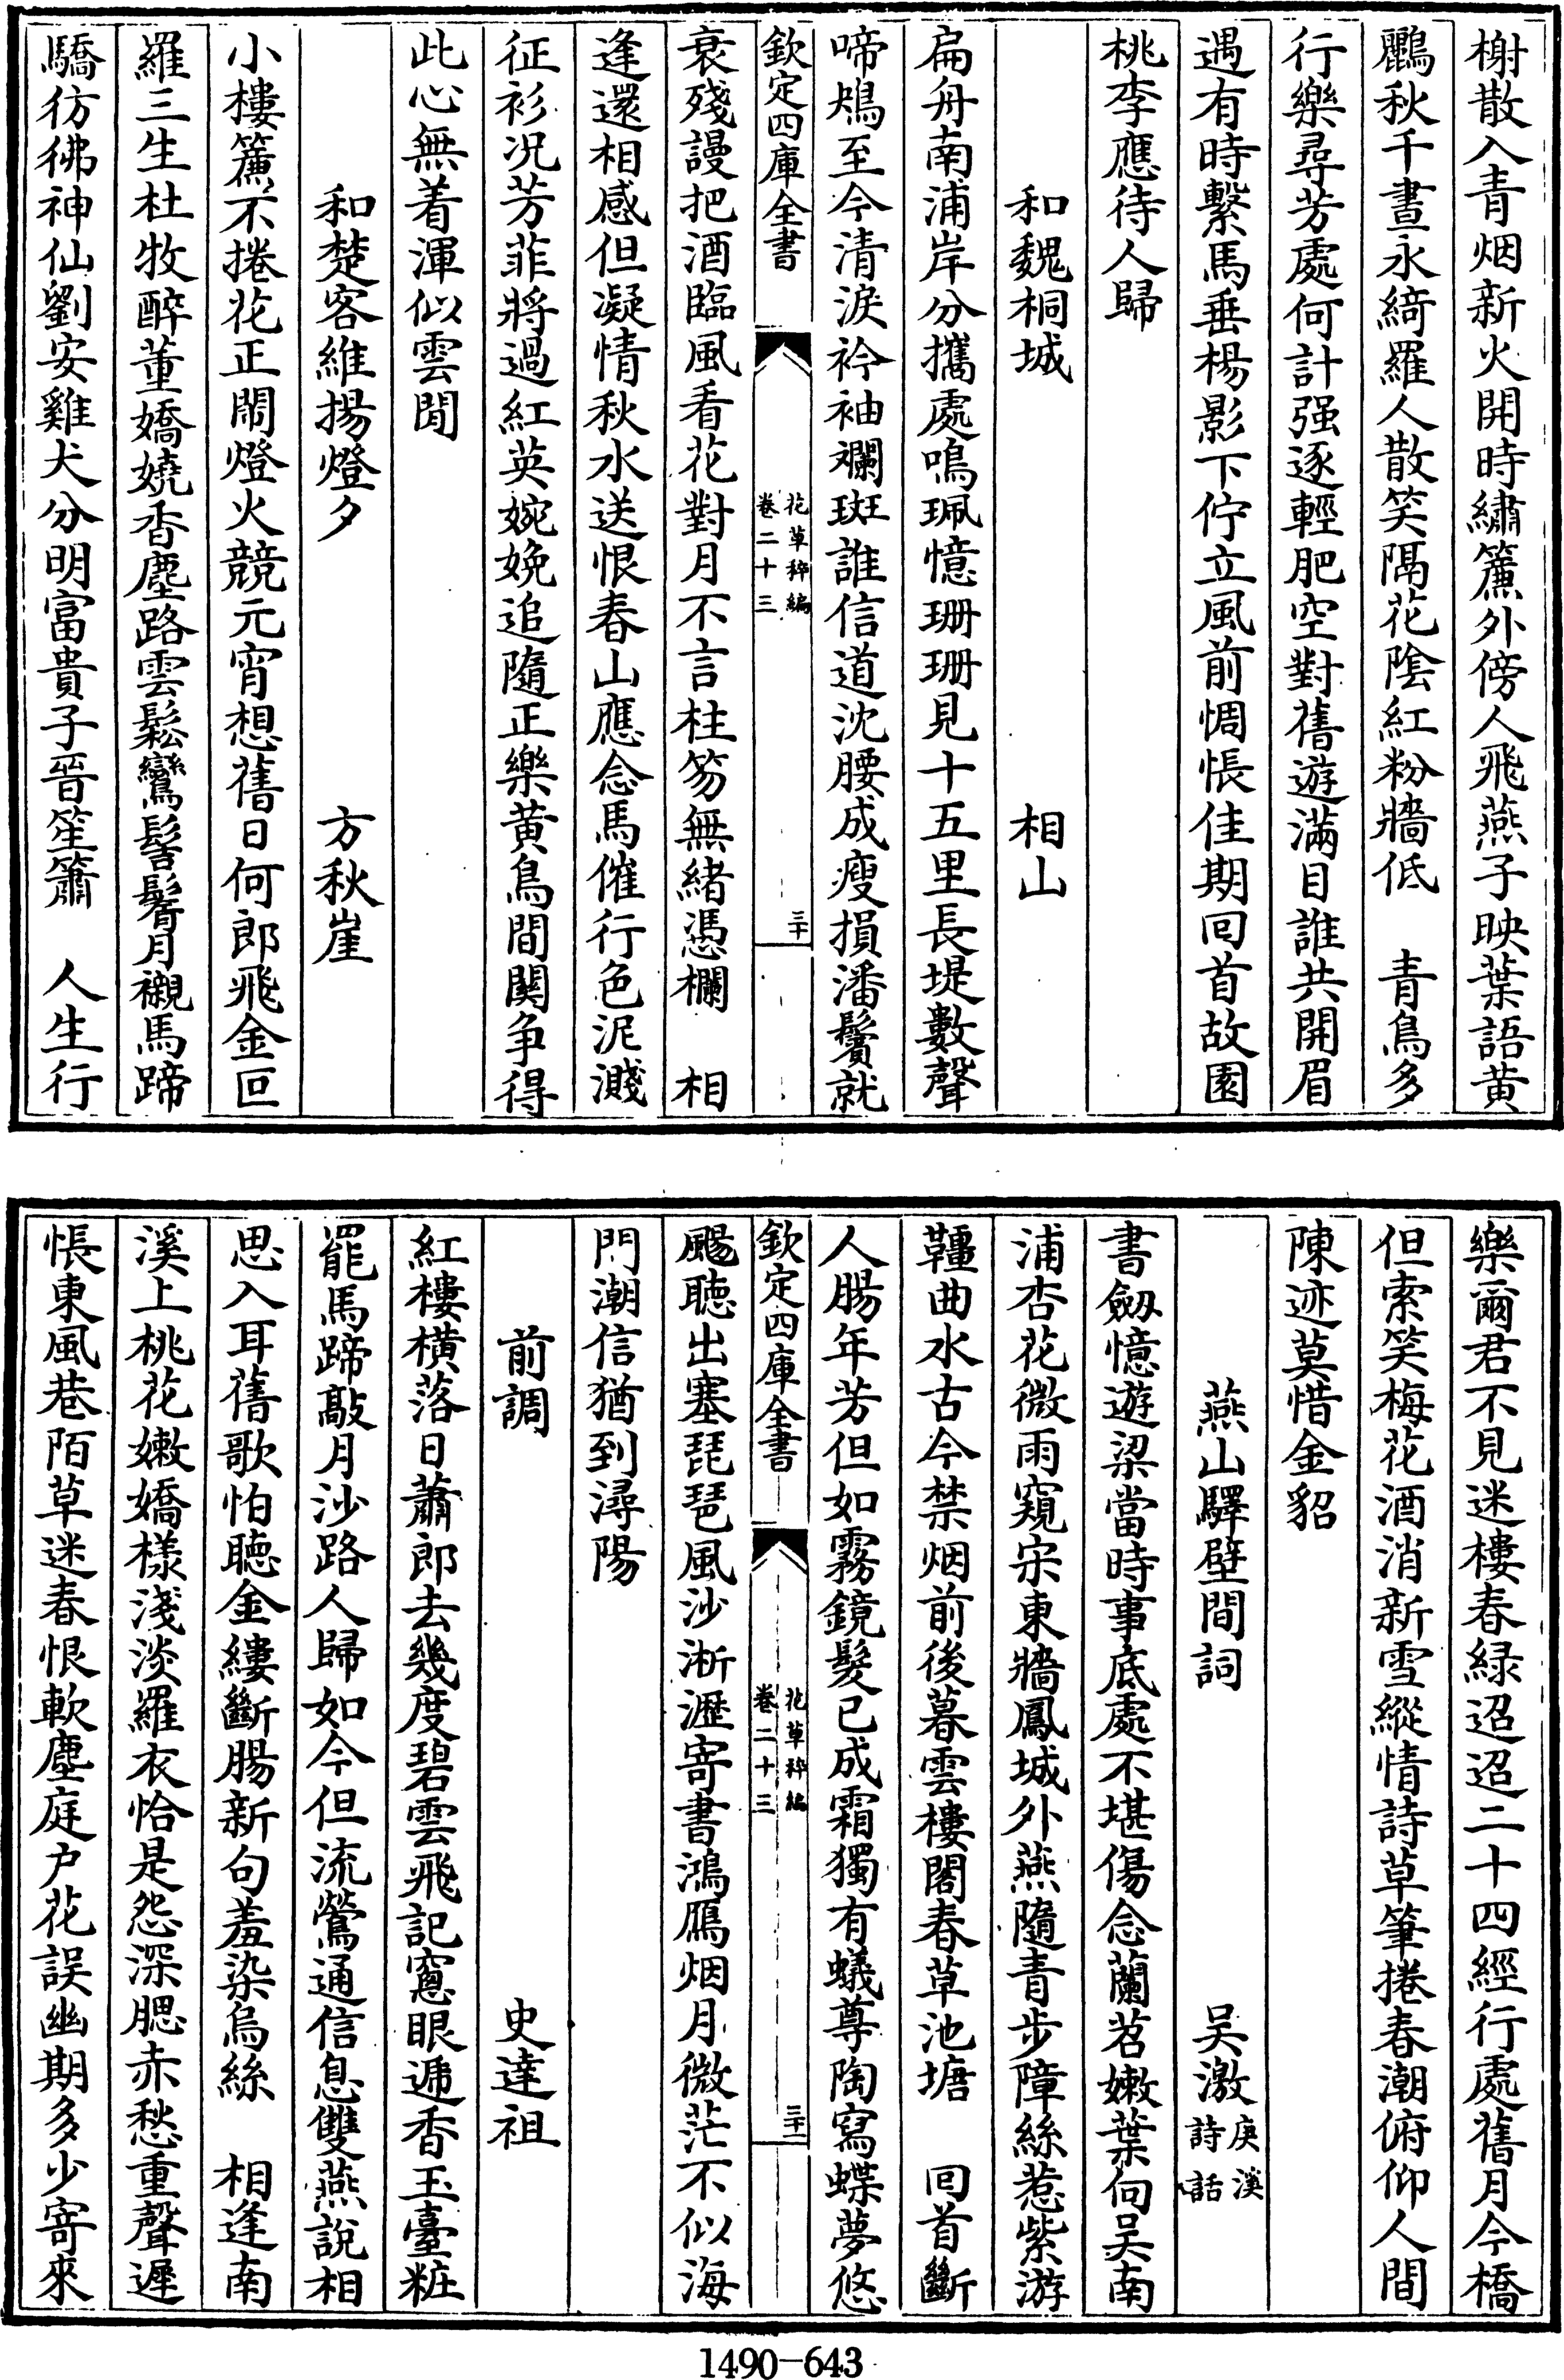 榭散入青烟新火開時繡簾外傍人飛燕子映葉語黄
鸝秋千晝永綺羅人散笑隔花陰紅粉牆低　青鳥多
行樂尋芳處何計强逐輕肥空對舊遊滿目誰共開眉
遇有時繫馬垂楊影下佇立風前惆悵佳期回首故園
桃李應待人歸
和魏桐城　相山
扁舟南浦岸分攜處鳴珮憶珊珊見十五里長堤數聲
啼鴂至今清淚衿袖斕斑誰信道沈腰成瘦損潘鬢就
欽定四庫全書
花草稡編
卷二十三
三十
衰殘謾把酒臨風看花對月不言柱笏無緒憑欄　相
逢還相感但凝情秋水送恨春山應念馬催行色泥濺
征衫况芳菲將過紅英婉娩追隨正樂黄鳥間關争得
此心無着渾似雲閒
和楚客維揚燈夕　方秋崖
小樓簾不捲花正鬧燈火競元宵想舊日何郎飛金叵
羅三生杜牧醉董嬌嬈香塵路雲鬆鸞髻鬌月襯馬蹄
驕彷彿神仙劉安雞犬分明富貴子晉笙簫　人生行
樂爾君不見迷樓春緑迢迢二十四經行處舊月今橋
但索笑梅花酒消新雪縱情詩草筆捲春潮俯仰人間
陳迹莫惜金貂
燕山驛壁間詞　吴激庚溪詩話
書劒憶遊梁當時事底處不堪傷念蘭苕嫩葉向吴南
浦杏花微雨窺宋東牆鳳城外燕隨青步障絲惹紫游
韁曲水古今禁烟前後暮雲樓閣春草池塘　回首斷
人腸年芳但如霧鏡髮已成霜獨有蟻尊陶寫蝶夢悠
欽定四庫全書
花草稡編
卷二十三
三十一
颺聽出塞琵琶風沙淅瀝寄書鴻鴈烟月微茫不似海
門潮信猶到潯陽
前調　史達祖
紅樓横落日蕭郎去幾度碧雲飛記窻眼遞香玉臺粧
罷馬蹄敲月沙路人歸如今但流鶯通信息雙燕說相
思入耳舊歌怕聽金縷斷腸新句羞染烏絲　相逢南
溪上桃花嫩嬌樣淺淡羅衣恰是怨深腮赤愁重聲遲
悵東風巷陌草迷春恨軟塵庭户花誤幽期多少寄來
1490—643